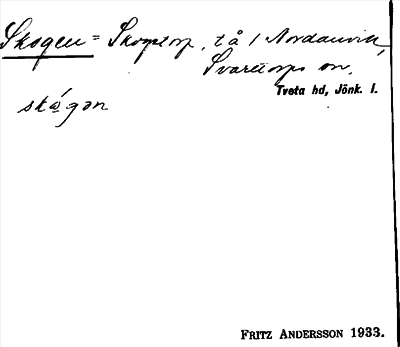 Skogen = Skogstorp, t å / Nordanvik,
Svarttorps sn.
Tveta hd, Jönk. l.
skógən
FRITZ ANDERSSON 1933.